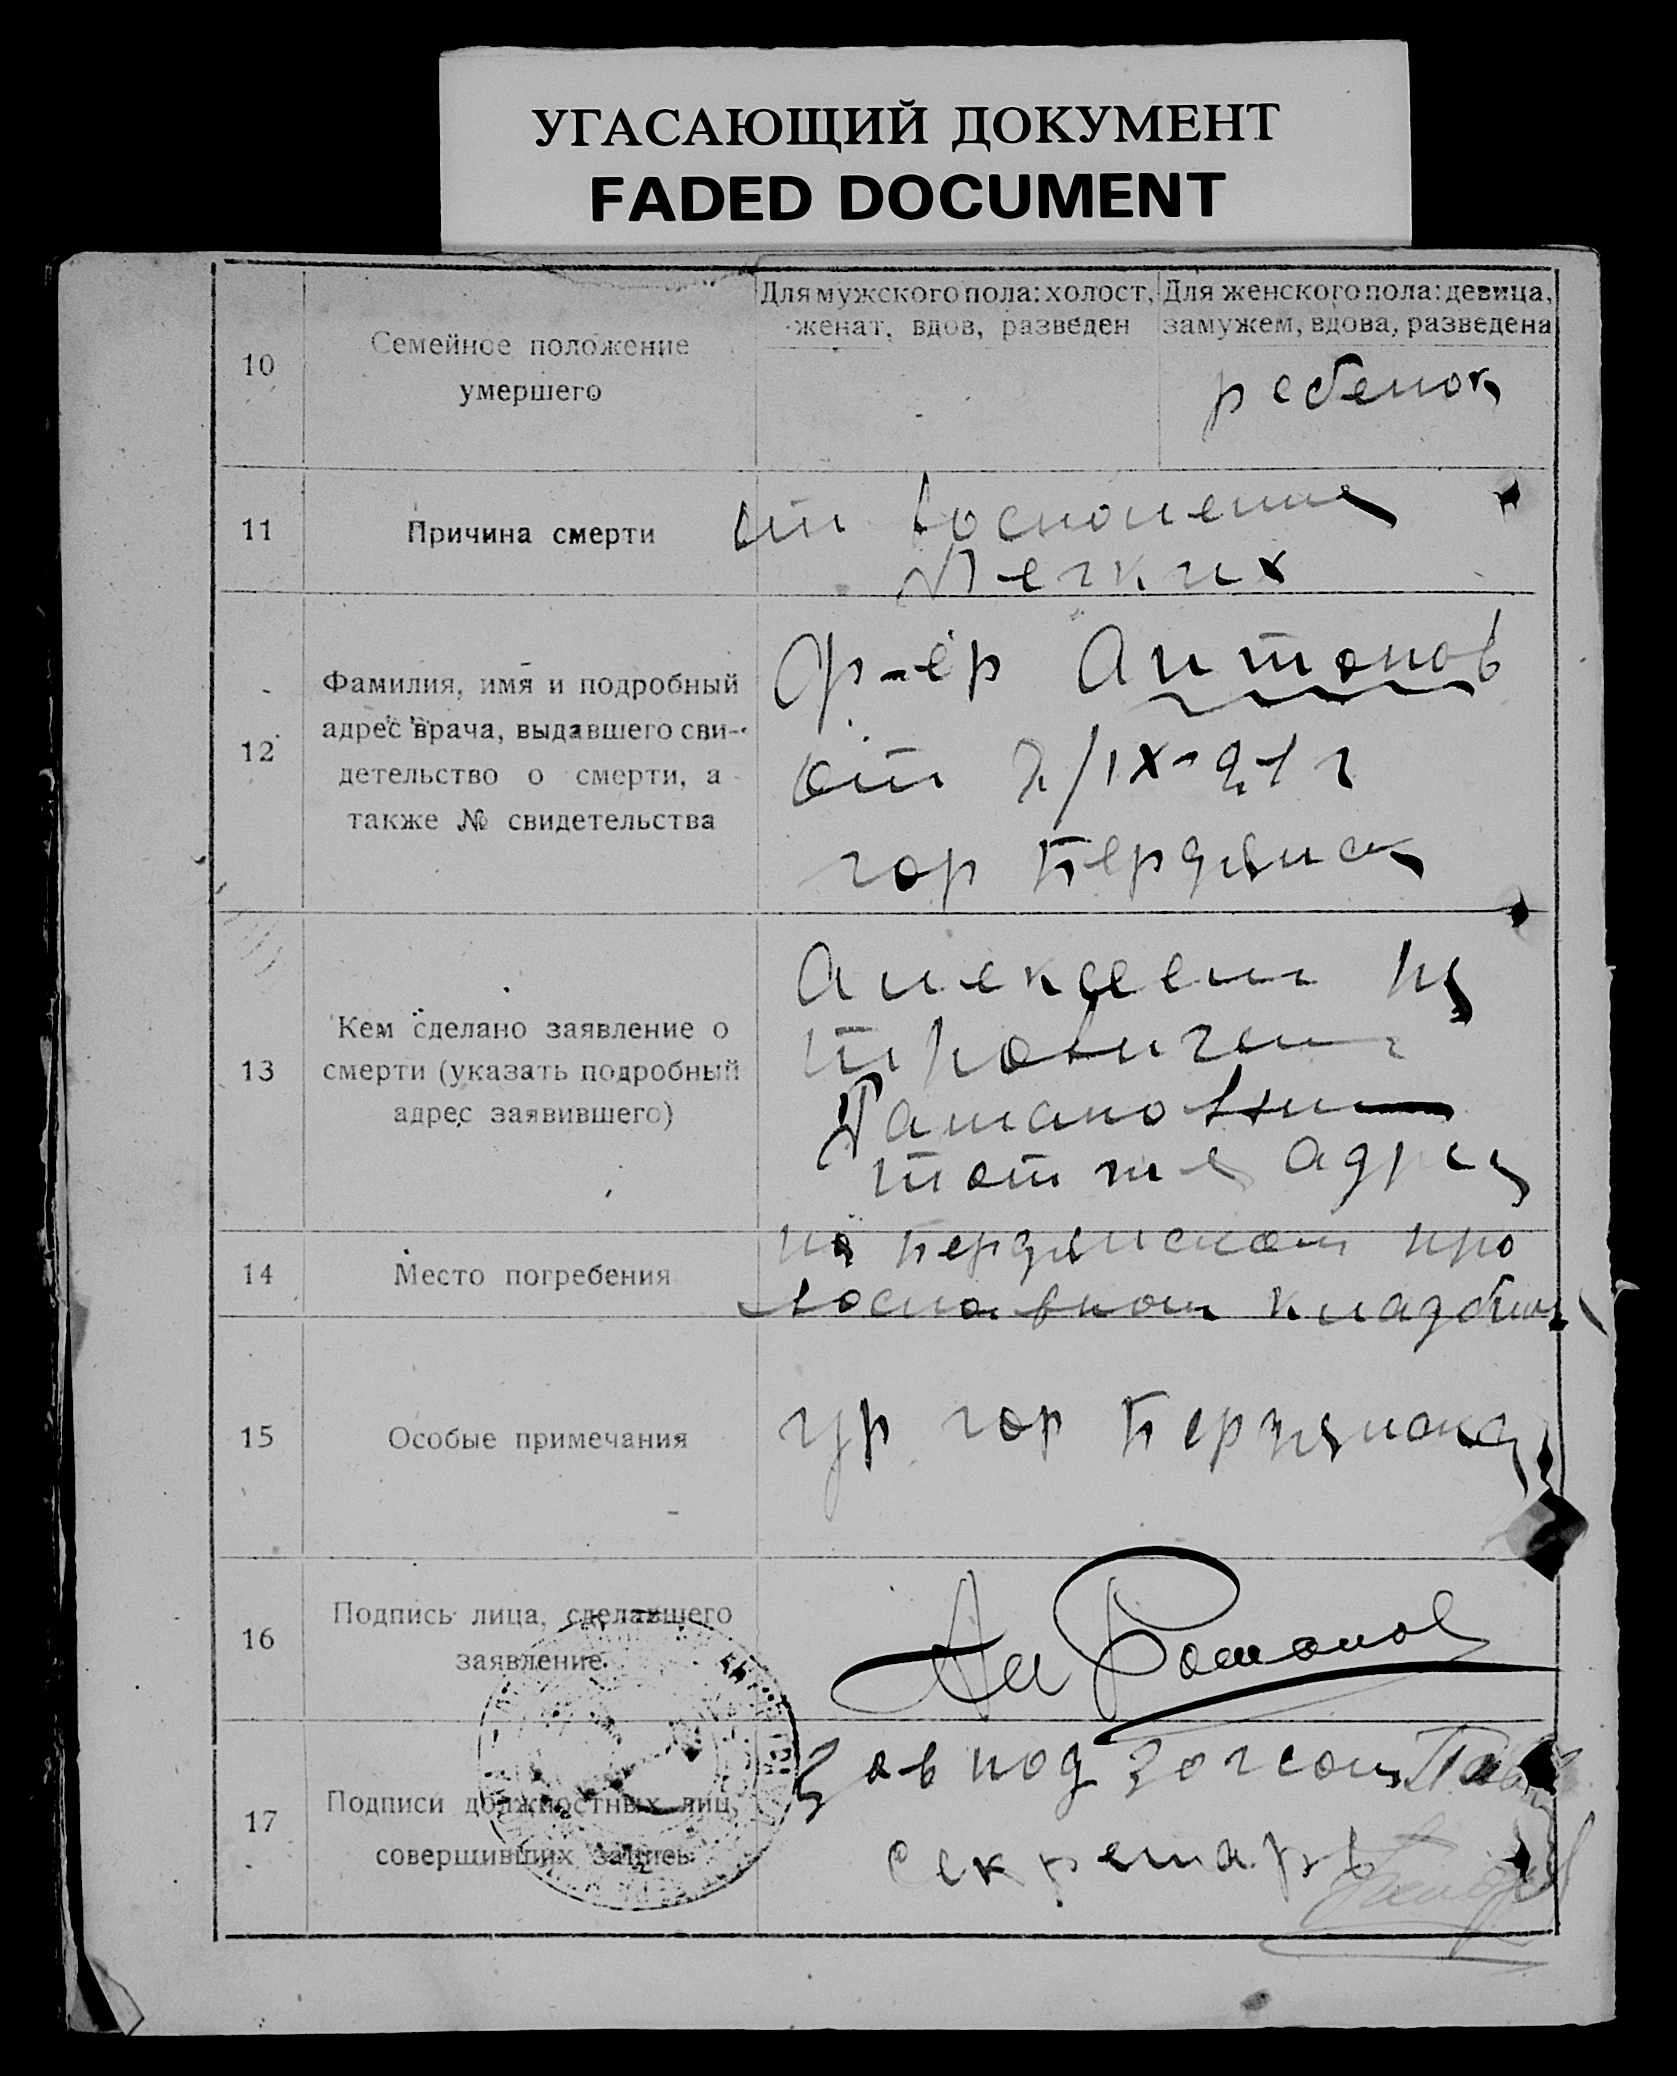 УГАСАЮЩИЙ ДОКУМЕНТ
FADED DOCUMENT
10
Семейное положение
умершего
Для мужского пола: холост,
женат, вдов, разведен
Для женского пола: девица,
замужем, вдова, разведена
ребенок
11
Причина смерти
от восполения
Легких
12
Фамилия, имя и подробный
адрес врача, выдавшего сви-
детельство о смерти, а
также № свидетельства
ф-ер Антонов
от 2/IX-21 г
гор Бердянск
13
Кем сделано заявление о
смерти (указать подробный
адрес заявившего)
Алексеем Пе
тровичем
тот же адрес
14
Место погребения
на Бердянском про
вославном кладбищ
15
Особые примечания
ур гор Бердянска
16
Подпись лица, сделавшего
заявление
Ал
17
Подписи должностных лиц,
совершивших запись
Зав под
секретарь